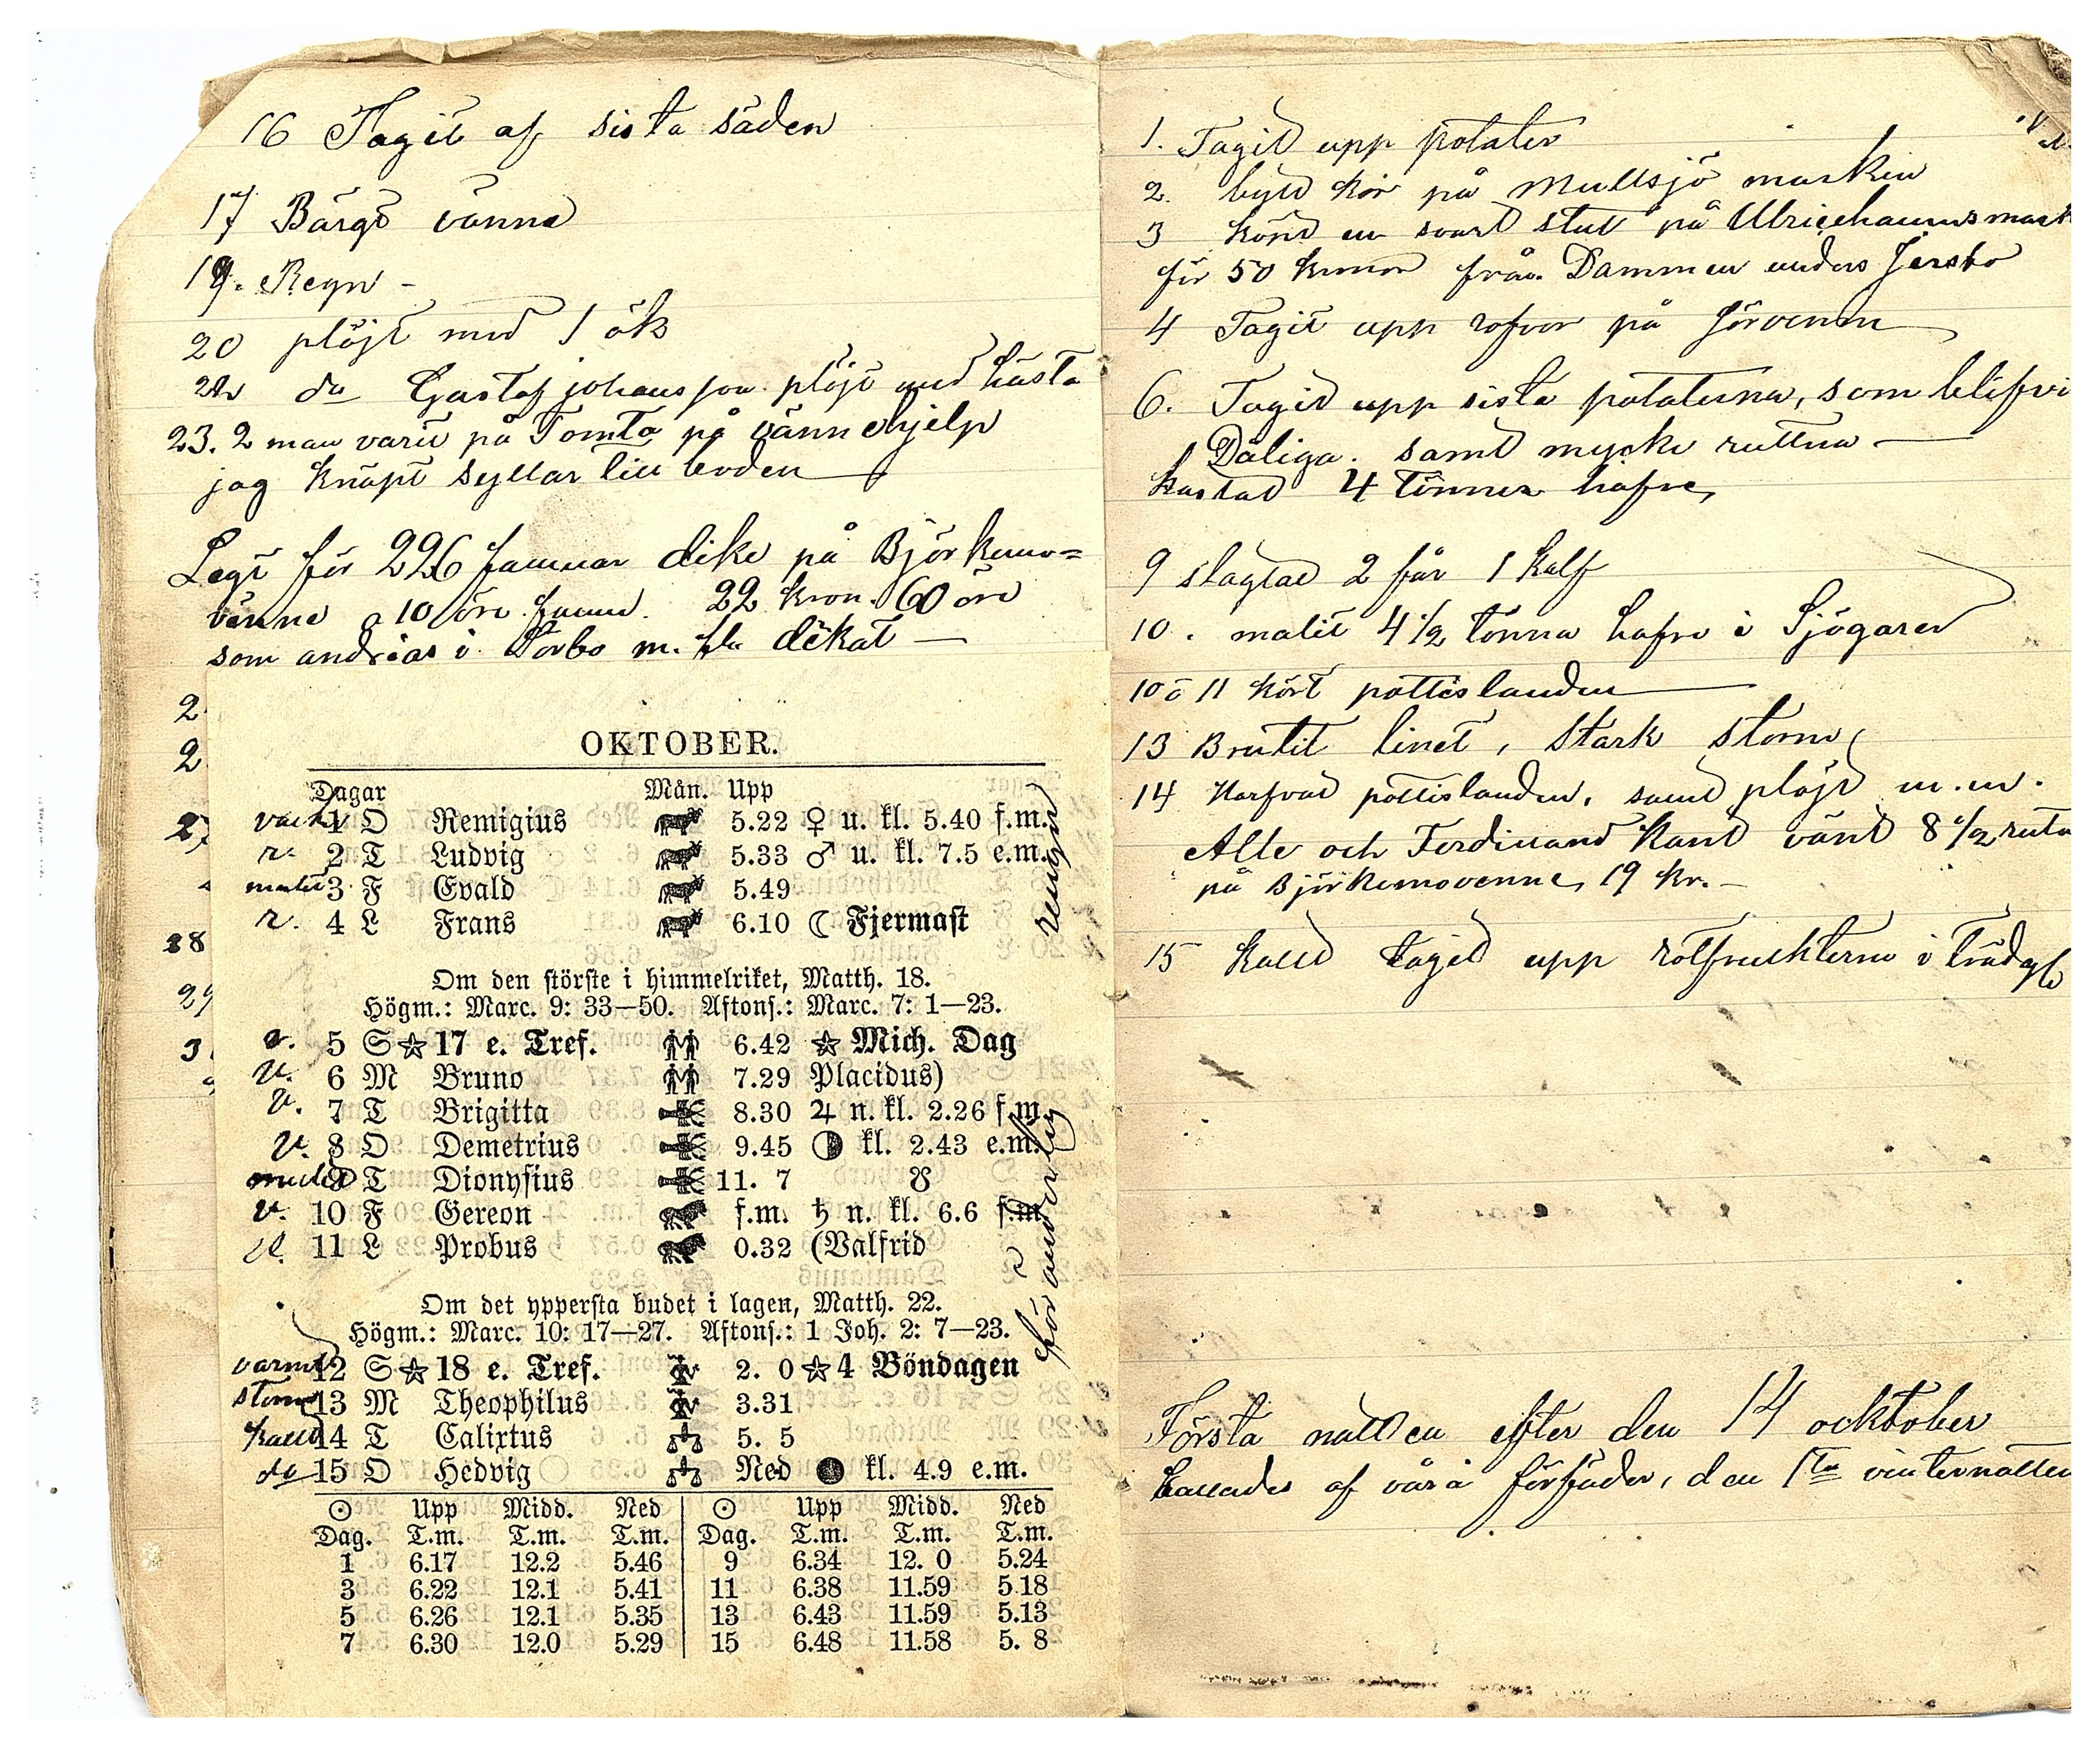 16 Tagit af sista säden
17 Bärgt vänne
19. Regn -
20 plöjt med 1 ök
22 do Gustaf johansson plöjt med hästa
23. 2 man varit på Tomta på vännehjelp
jag knäpt syllar till boden
Legt för 226 famnar dike på Björkemo=
vänne a 10 öre famn. 22 kron. 60 öre
som andreas i Torbo m. fl. dikat —
2
2
27
28
29
3
OKTOBER.
Dagar Mån. Upp
vack 1 O Remigius 5.22 ♀ u. kl. 5.40 f.m.
r. 2 T Ludvig 5.33 ♂ u. kl. 7.5 e.m.
mulet 3 F Evald 5.49
r. 4 L Frans 6.10 ☾ Fjermast
rengn
Om den störste i himmelriket, Matth. 18.
Högm.: Marc. 9: 33—50. Aftons.: Marc. 7: 1—23.
v. 5 S ☆ 17 e. Tref. 6.42 ☆ Mich. Dag
v. 6 M Bruno 7.29 Placidus)
v. 7 T Brigitta 8.30 ♃ n. kl. 2.26 f.m.
v. 8 O Demetrius 9.45 ◑ kl. 2.43 e.m.
mulet 9 T Dionysius 11. 7 ☋
v. 10 F Gereon f.m. ♄ n. kl. 6.6 f.m.
11 L Probus 0.32 (Valfrid
föränderlig
Om det yppersta budet i lagen, Matth. 22.
Högm.: Marc. 10: 17—27. Aftons.: 1 Joh. 2: 7—23.
varmt 12 S ☆ 18 e. Tref. 2. 0 ☆ 4 Böndagen
storm 13 M Theophilus 3.31
kallt 14 T Calixtus 5. 5
do 15 O Hedvig Ned ● kl. 4.9 e.m.
☉ Upp Midd. Ned ☉ Upp Midd. Ned
Dag. T.m. T.m. T.m. Dag. T.m. T.m. T.m.
1 6.17 12.2 5.46 9 6.34 12. 0 5.24
3 6.22 12.1 5.41 11 6.38 11.59 5.18
5 6.26 12.1 5.35 13 6.43 11.59 5.13
7 6.30 12.0 5.29 15 6.48 11.58 5. 8
1. Tagit upp potater
2. bytt kor på Mullsjö markin
3 könt en svart stut på Ulricehamns mark
för 50 kronor från Dammen anders Jersbo
4 Tagit upp rofvor på Jörvenn
6. Tagit upp sista potaterna, som blifvi
Dåliga. samt mycke ruttna —
kastat 4 tönner hafre,
9 slagtat 2 får 1 kalf
10. malit 4 1/2 tönna hafre i Sjögared
10 o 11 kört pottislanden
13 Brutit linet, stark storm,
14 Harfvat pottislanden, samt plöjt m.m.
Alle och Ferdinand kant vänt 8 1/2 ruta
på Björkemovenne, 19 kr. —
15 kallt tagit upp rotfrukterna i trädgå
Första natten efter den 14 ocktober
kallades af våra förfäder, den 1ta vinternatten